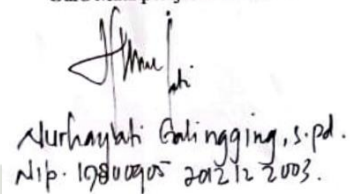 Nurhayati Galingging, S.pd.
Nip. 19800905 201212 2003.